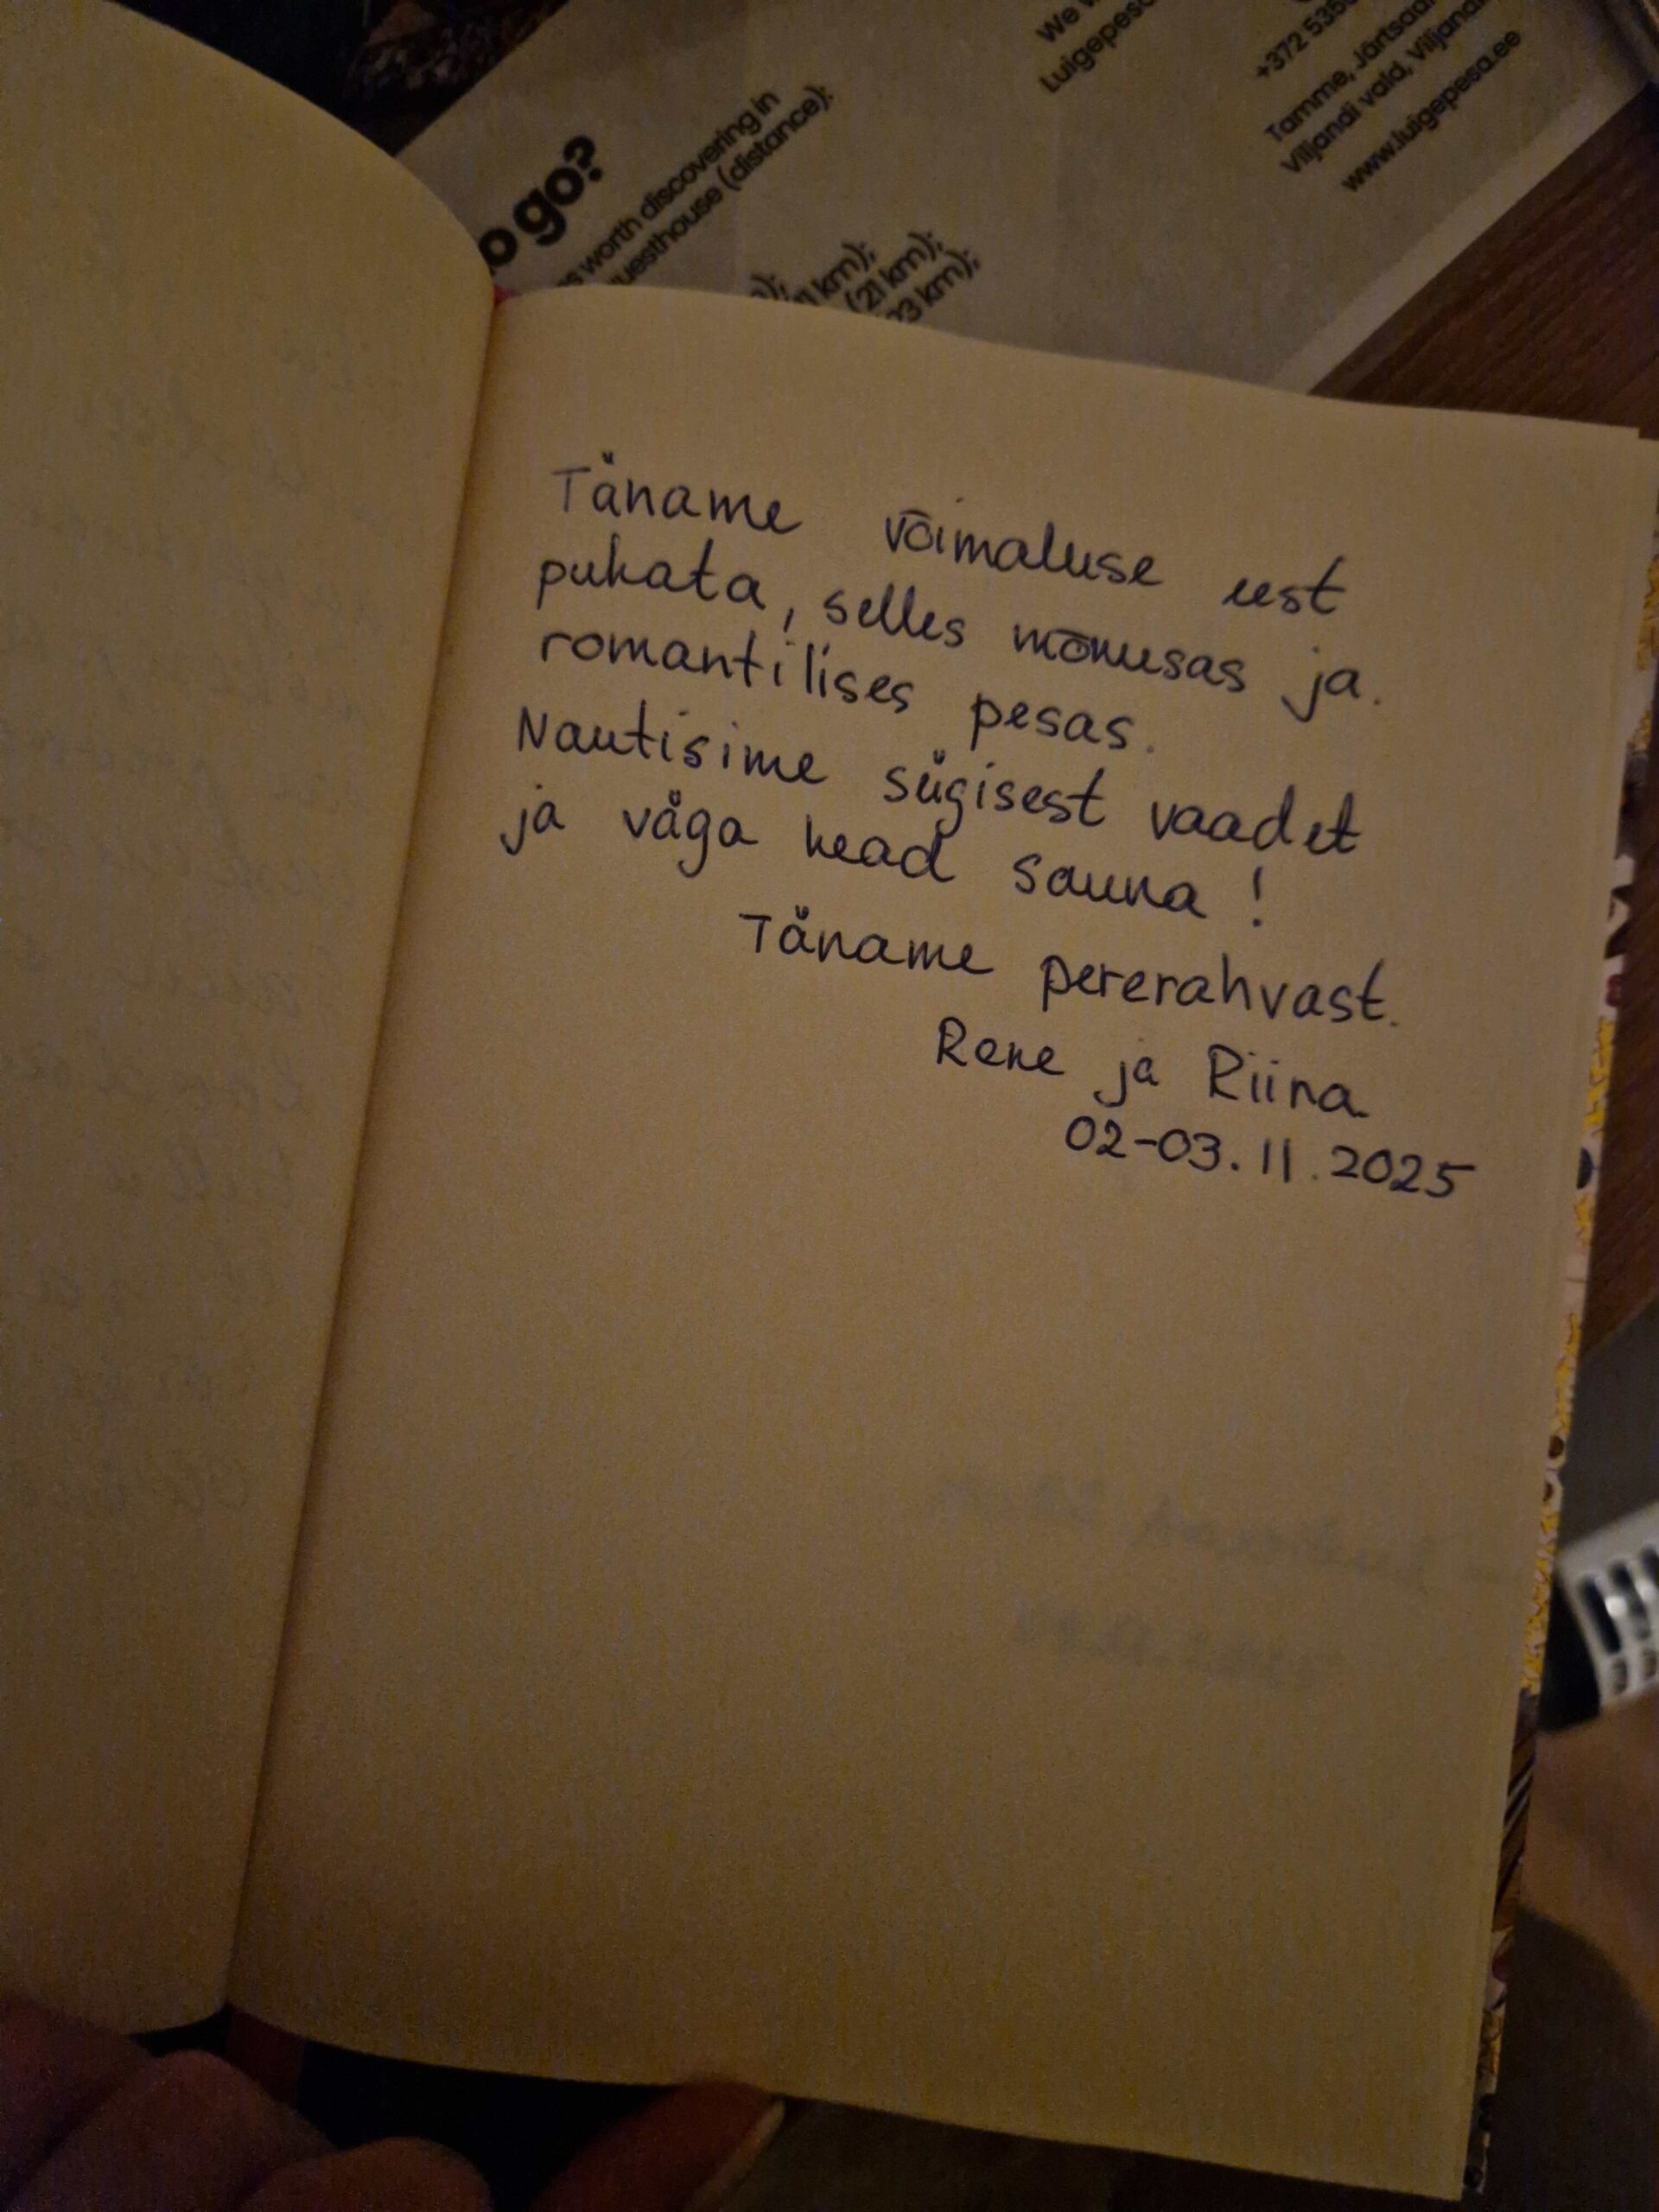 o go?
s worth discovering in
uesthouse (distance):
1 km);
(21 km);
03 km);
We
Luigepesa
+372 535
Tamme, Järtsaar
Viljandi vald, Viljandi
www.luigepesa.ee
Täname võimaluse eest
puhata, selles mõnusas ja.
romantilises pesas.
Nautisime sügisest vaadet
ja väga head sauna!
Täname pererahvast.
Rene ja Riina
02-03.11.2025